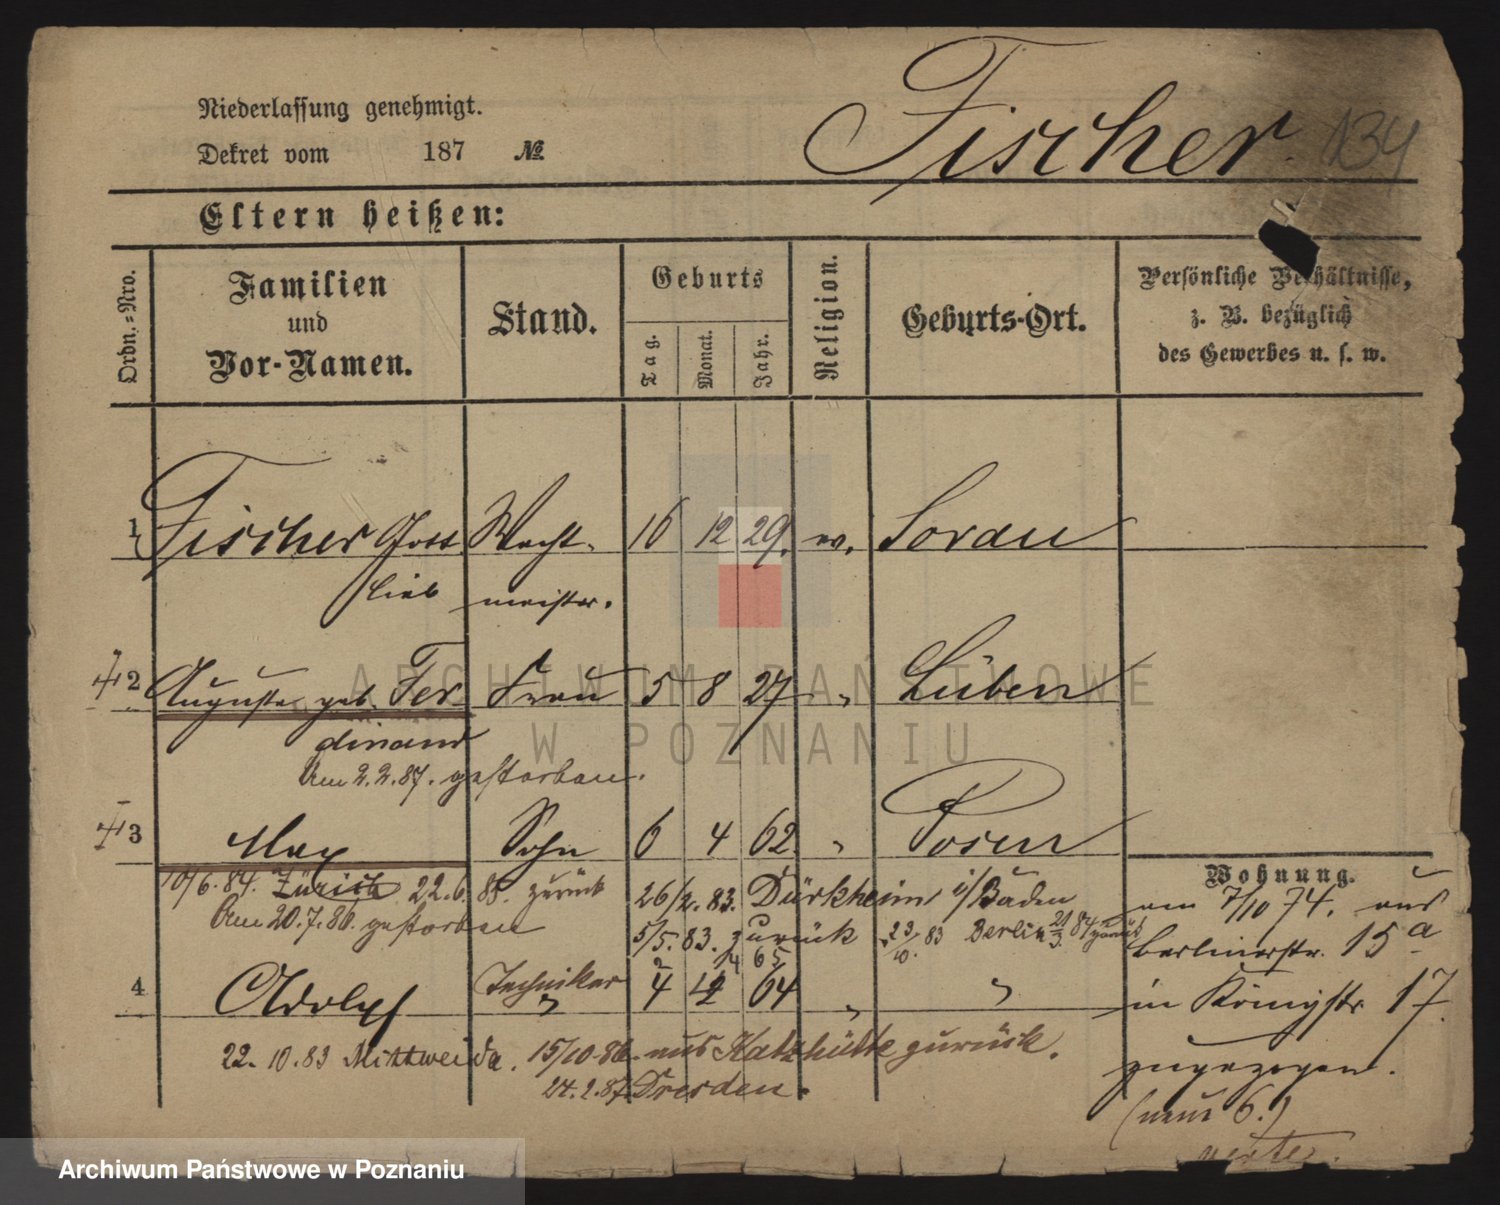 Niederlassung genehmigt.
Dekret vom 187 №
Fischer. 134
Eltern heißen:
Ordn.-Nro.
Familien und Vor-Namen.
Stand.
Geburts
Tag. Monat. Jahr.
Religion.
Geburts-Ort.
Persönliche Verhältnisse,
z. B. bezüglich
des Gewerbes u. s. w.
1 Fischer Gott Wacht- 16 12 29. ev. Sorau
lieb meister.
2 Auguste geb. Fer Frau 5 8 27 " Lüben
dinand
Am 2.2.87. gestorben.
3 Max Sohn 6 4 62. " Posen
Wohnung.
10/6.84. Zürich 22.6. 85. zurück 26/2.83. Dürkheim i/Baden
am 7/10 74. aus
Am 20.7.86. gestorben 5/5.83. zurück 23/10. 83 Berlin 21/3. 84 zurück
Berlinerstr. 15a
2 14 65
4 Adolf Techniker " 4 12 64 " "
in Königstr 17.
22.10.83 Mittweida. 15/10.86. aus Katzhütte zurück.
zugezogen.
24.2.87. Dresden.
(neue 6.)
verte.
ARCHIWUM PAŃSTWOWE
W POZNANIU
Archiwum Państwowe w Poznaniu